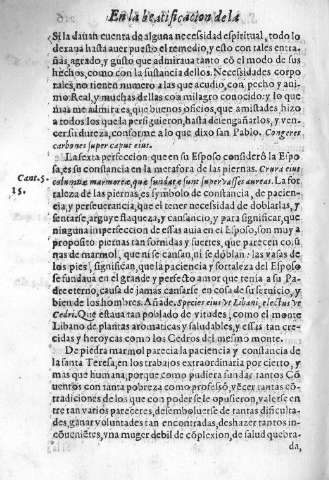 En la beatificacion de la
Si la dauan cuenta de alguna necessidad espiritual, todo lo
dexaua hasta auer puesto el remedio, y esto con tales entra-
ñas, agrado, y gusto que admiraua tanto cõ el modo de sus
hechos, como con la sustancia dellos. Necessidades corpo
rales, no tienen numero a las que acudio, con pecho y ani-
mo Real, y muchas dellas con milagro conocido: y lo que
mas me admira es, que buenos oficios, que amistades hizo
a todos los que la persiguieron, hasta desengañarlos, y ven-
cer su dureza, conforme a lo que dixo san Pablo. Congeres
carbones super caput eius.
La sexta perfeccion que en su Esposo consideró la Espo-
Cant. 5.
sa, es su constancia en la metafora de las piernas. Crura eius
15.
columnæ marmoreæ, quæ fundatæ sunt super basses aureas. La for
taleza de las piernas, es symbolo de constancia, de pacien-
cia, y perseuerancia, que el tener necesidad de doblarlas, y
sentarse, arguye flaqueza, y cansancio, y para significar, que
ninguna imperfeccion de essas auia en el Esposo, son muy a
proposito piernas tan fornidas y fuertes, que parecen colũ
nas de marmol, que ni se cansan, ni se doblan: las vasas de
los pies, significan, que la paciencia y fortaleza del Esposo
se fundaua en el grande y perfecto amor que tenia a su Pa-
dre eterno, causa de jamas cansarse en cosa de su seruicio, y
bien de los hombres. Añade. Species eius vt Libani, electus vt
Cedri. Que estaua tan poblado de vitudes, como el monte
Libano de plantas aromaticas y saludables, y essas tan cre-
cidas y heroycas como los Cedros del mesmo monte.
De piedra marmol parecia la paciencia y constancia de
la santa Teresa, en los trabajos extraordinaria por cierto, y
mas que humana, porque como pudiera fundar tantos Cõ
uentos con tanta pobreza como professó, vẽcer tantas cõ-
tradiciones de los que con poder se le opusieron, valerse en
tre tan varios pareceres, desemboluerse de tantas dificulta-
des, ganar voluntades tan encontradas, deshazer tantos in-
cõuenientes, vna muger debil de cõplexion, de salud quebra-
da,